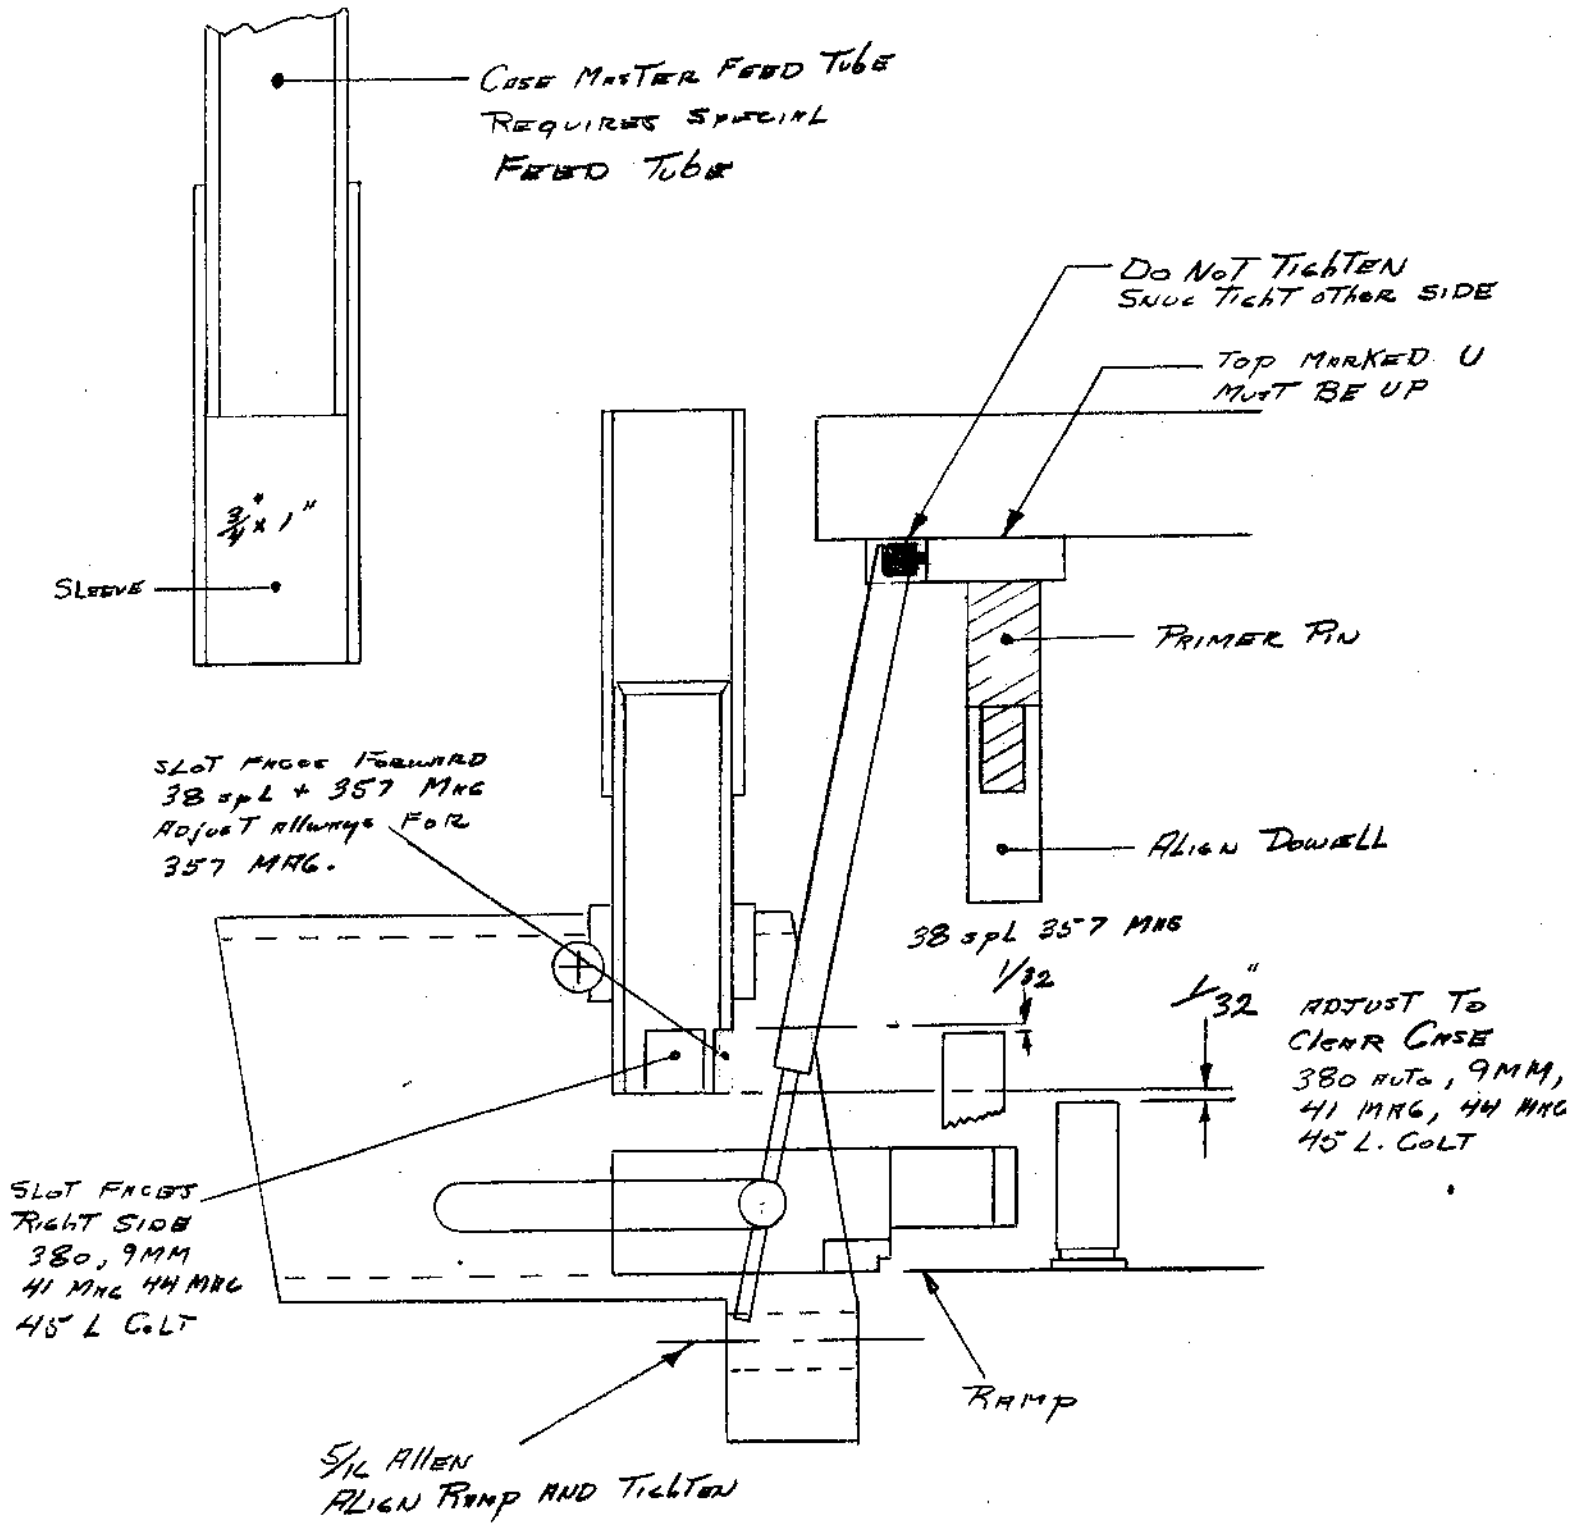 CASE MASTER FEED TUBE
REQUIRES SPECIAL
FEED TUBE
DO NOT TIGHTEN
SNUG TIGHT OTHER SIDE
TOP MARKED U
MUST BE UP
3/4" x 1"
SLEEVE
PRIMER PIN
SLOT FACES FORWARD
38 spL + 357 MAG
ADJUST Allways FOR
357 MAG.
ALIGN DOWELL
38 spL 357 MAG
1/32
1/32"
ADJUST TO
CLEAR CASE
380 AUTO, 9MM,
41 MAG, 44 MAG
45 L. COLT
SLOT FACES
RIGHT SIDE
380, 9MM
41 MAG 44 MAG
45 L COLT
RAMP
5/16 ALLEN
ALIGN RAMP AND TIGHTEN